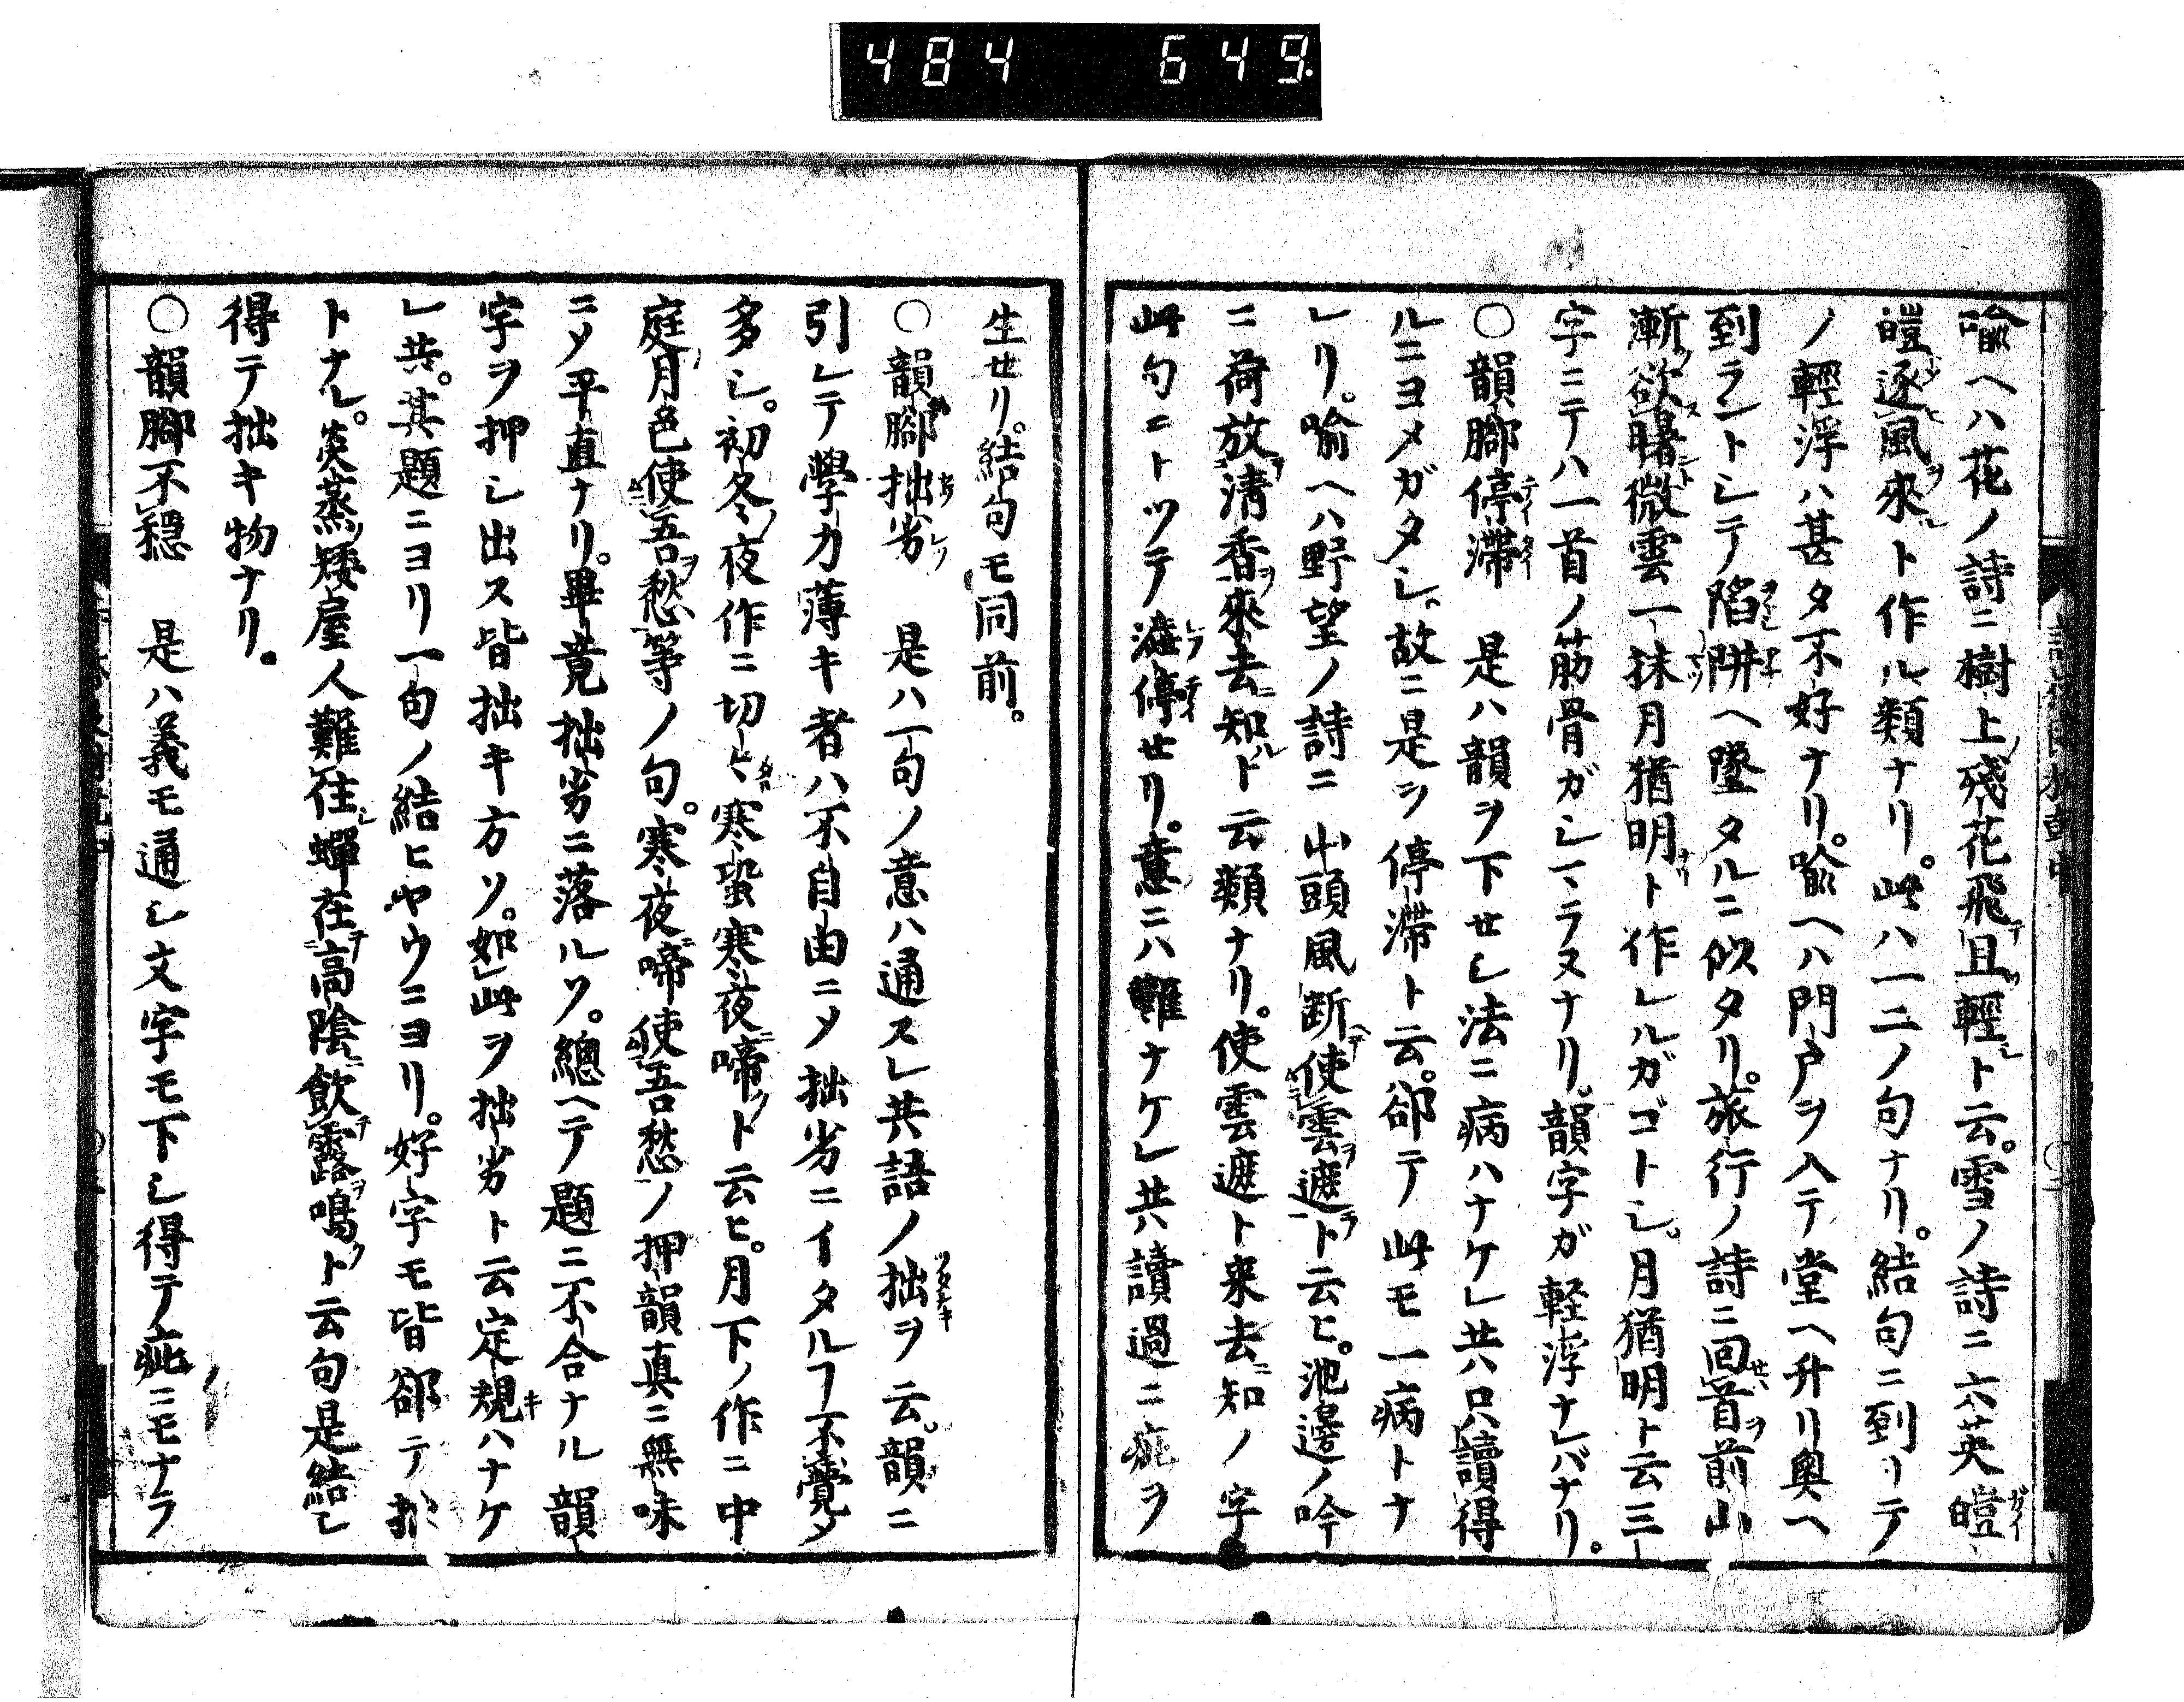 484 649
喩ヘハ花ノ詩ニ樹上殘花飛且輕ト云。雪ノ詩ニ六英皚
皚逐風來ト作ル類ナリ。此ハ一二ノ句ナリ。結句ニ到リテ
ノ輕浮ハ甚タ不好ナリ。喩ヘハ門戸ヲ入テ堂ヘ升リ奥ヘ
到ラントシテ陷阱ヘ墜タルニ似タリ。旅行ノ詩ニ回首前山
漸欲曙微雲一抹月猶明ト作レルガゴトシ。月猶明ト云三
字ニテハ一首ノ筋骨ガシマラヌナリ。韻字ガ軽浮ナレバナリ。
○韻腳停滯 是ハ韻ヲ下セシ法ニ病ハナケレ共只讀得
ルニヨメガタシ。故ニ是ヲ停滯ト云。郤テ此モ一病トナ
レリ。喩ヘハ野望ノ詩ニ出頭風断使雲遮ト云ヒ。池邊ノ吟
ニ荷放清香來去知ト云類ナリ。使雲遮ト来去知ノ字
此句ニトツテ澁停セリ。意ニハ難ナケレ共讀過ニ疵ヲ
生セリ。結句モ同前。
○韻腳拙劣 是ハ一句ノ意ハ通スレ共語ノ拙ヲ云。韻ニ
引レテ學力薄キ者ハ不自由ニメ拙劣ニイタルヿ不覺メ
多シ。初冬夜作ニ切々寒蛩寒夜啼ト云ヒ。月下ノ作ニ中
庭月色使吾愁等ノ句。寒夜啼使吾愁ノ押韻真ニ無味
ニメ平直ナリ。畢竟拙劣ニ落ルソ。總ヘテ題ニ不合ナル韻
字ヲ押シ出ス皆拙キ方ソ。如此ヲ拙劣ト云定規ハナケ
レ共。其題ニヨリ一句ノ結ヒヤウニヨリ。好字モ皆郤テ拙
トナル。炎蒸矮屋人難住蟬在高陰飲露鳴ト云句是結シ
得テ拙キ物ナリ。
○韻腳不穏 是ハ義モ通シ文字モ下シ得テ疵ニモナラ